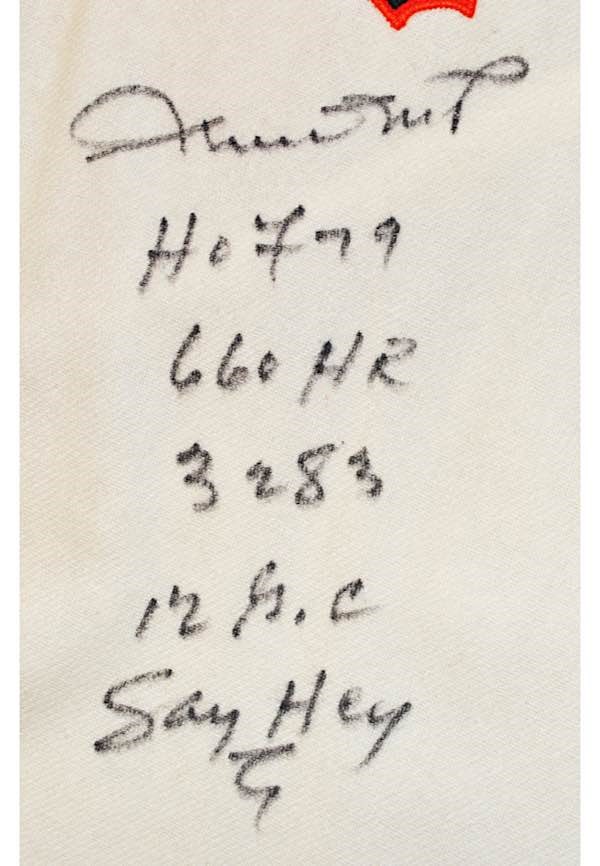 Willie Mays
HOF 79
660 HR
3283
12 G.G
Say Hey